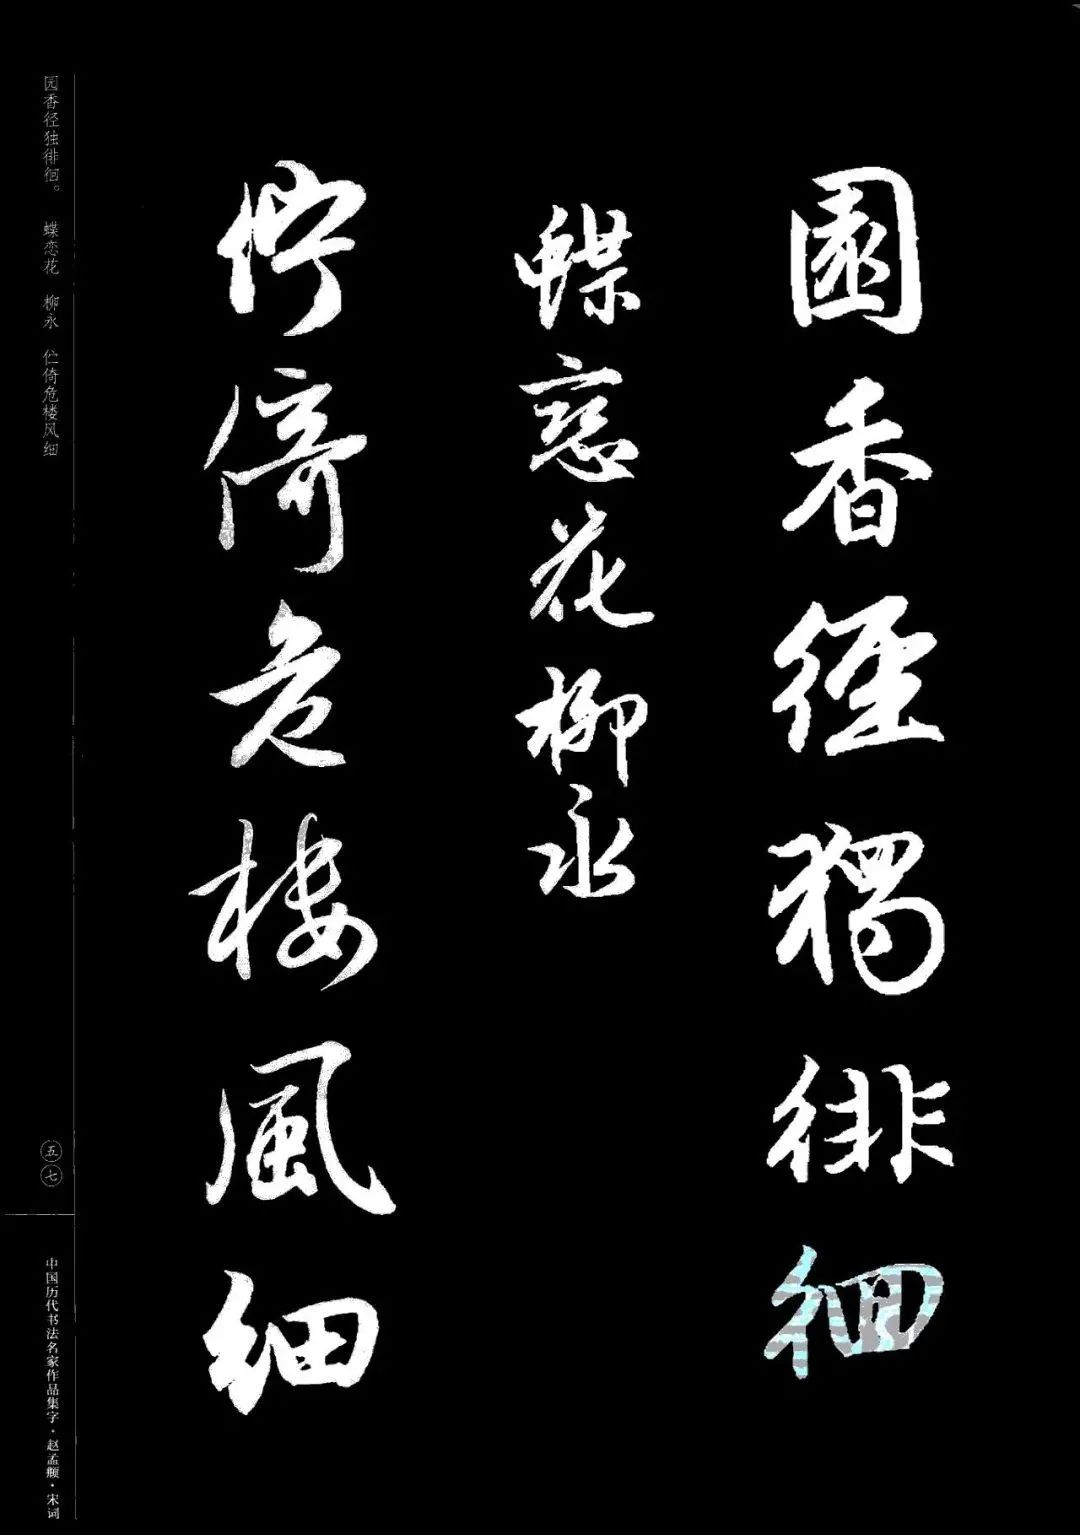 園香徑獨徘徊
蝶戀花柳永
佇倚危樓風細
园香径独徘徊。 蝶恋花 柳永 伫倚危楼风细
五七
中国历代书法名家作品集字·赵孟頫·宋词